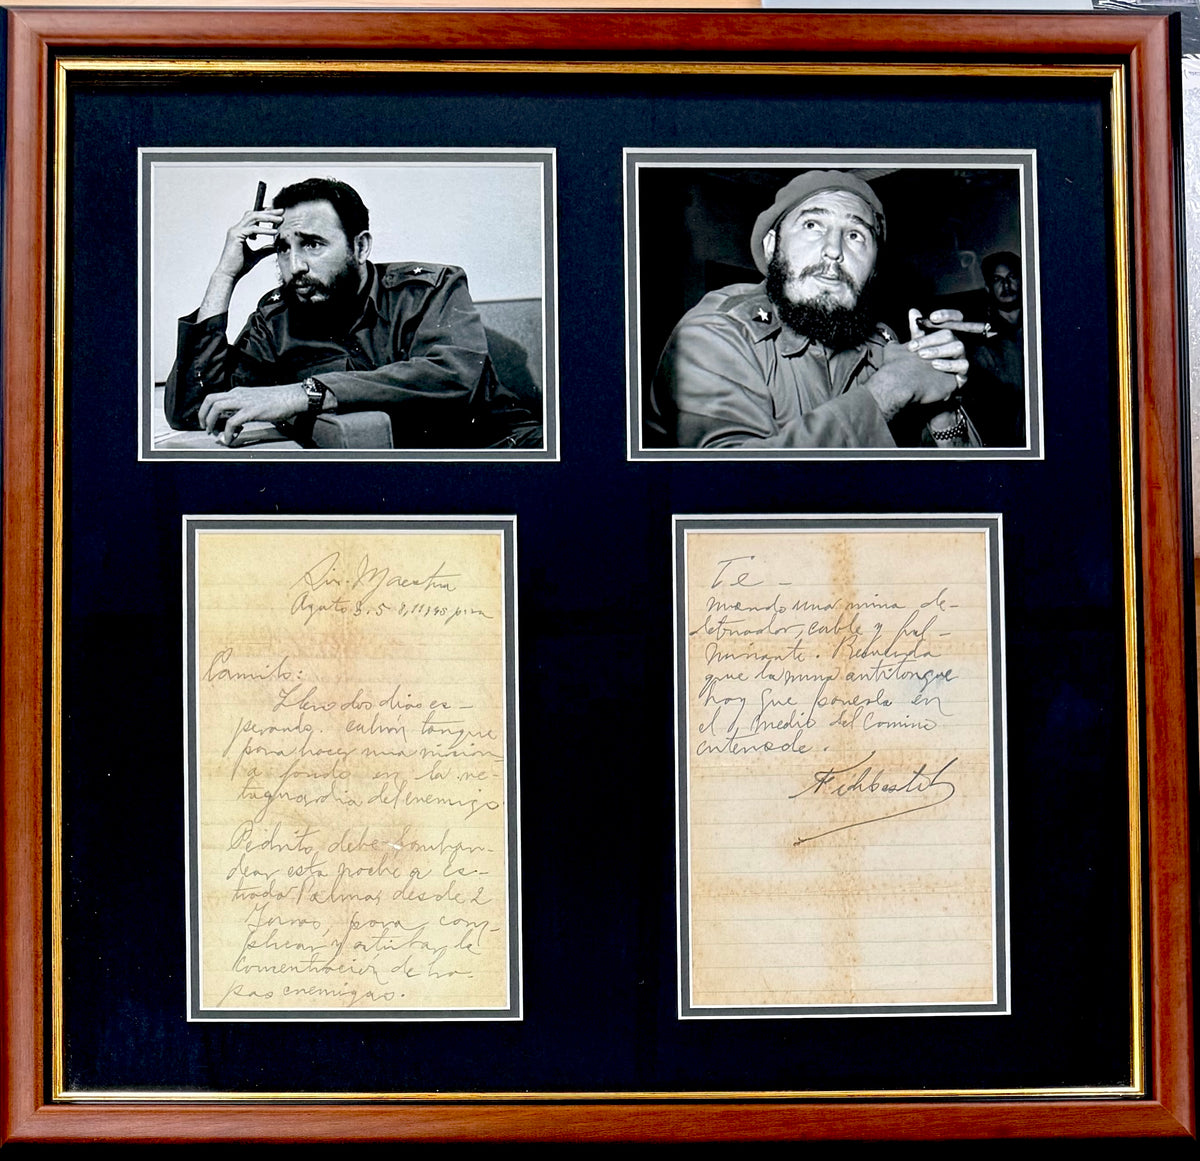 Sra. Maestra
Agosto 3, 58
Camilo:
Llevo dos dias es-
perando
para hacer una
a fondo en la re-
taguardia del enemigo.
Pedrito debe bombar-
dear esta noche a Es-
trada Palma desde 2
para com-
plicar y la
concentración de tro-
pas enemigas.
Te -
mando una mina de-
tonador, cable y ful-
minante. Recuerda
que la mina antitanque
hay que ponerla en
el medio del camino
enterrada.
Fidel Castro